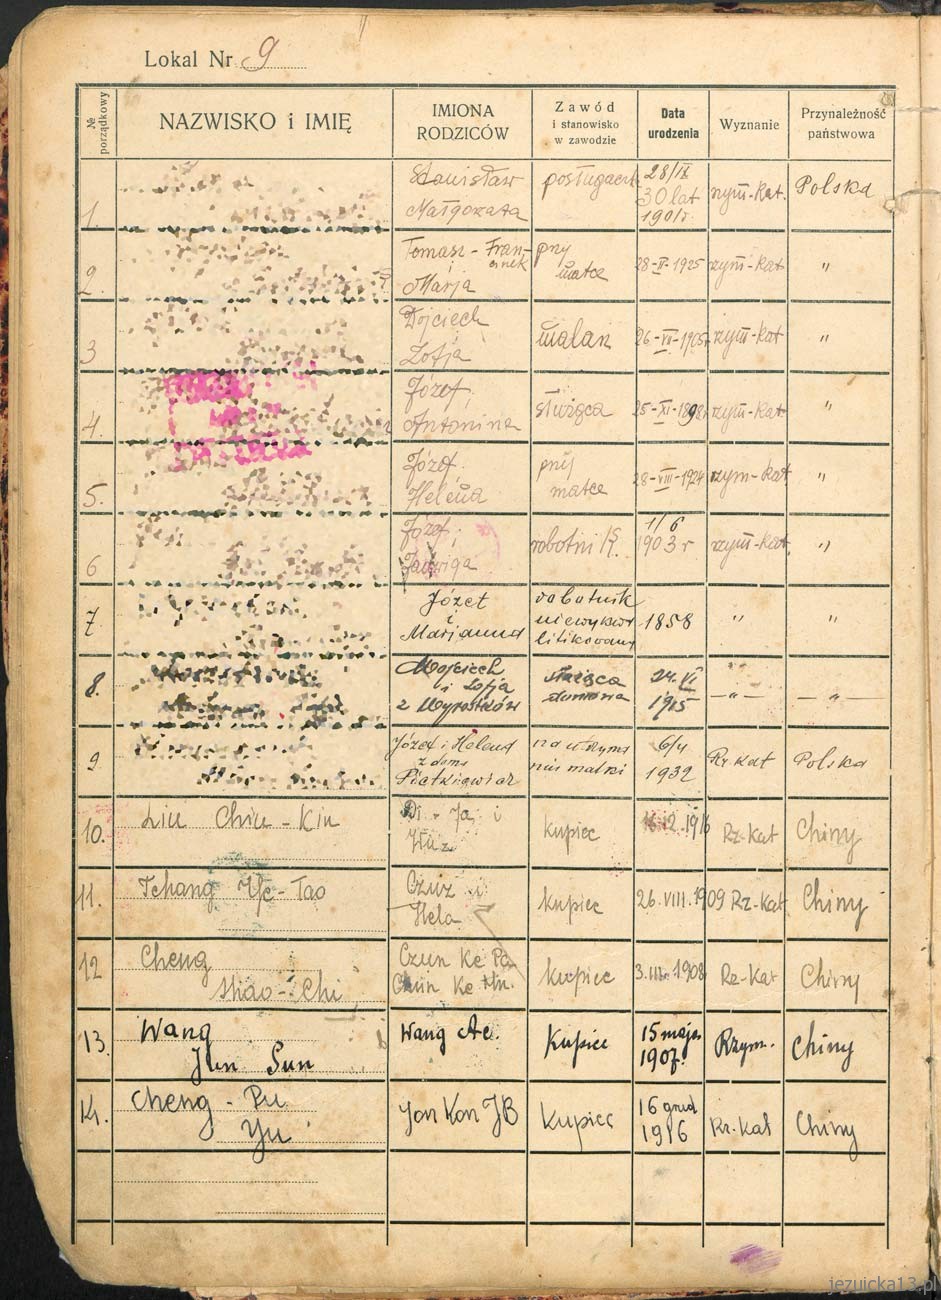 Lokal Nr 9
№ porządkowy
NAZWISKO i IMIĘ
IMIONA RODZICÓW
Zawód i stanowisko w zawodzie
Data urodzenia
Wyznanie
Przynależność państwowa
1. Stanisław 28/IX rzym-kat. Polska
Małgorzata 30 lat
1901r.
2. Tomasz - Franciszek przy 28-II-1925 rzym-kat "
i Marja matce
3 Wojciech malarz 26-VII-1905r rzym-kat "
i Zofja
4. Józef służąca 25-XI-1898r rzym-kat "
Antonina
5. Józef przy 28-VIII-1924 rzym-kat "
Helena matce
6 Józef i 1/6 rzym-kat. "
Jadwiga 1903 r
7. Józef robotnik 1858 " "
i niewykwa
Marjanna lifikowany
8. Wojciech służąca 24.VI — " — — " —
i Zofja domowa 1915
z
9. Józef i Helena na utrzyma 6/4 Rz-kat Polska
z domu niu matki 1932
10. Liu Chiu - Kin kupiec 1916 Rz-Kat Chiny
11. Tchang - Tao i kupiec 26.VIII.1909 Rz-Kat Chiny
Hela
12 Cheng Czun Ke kupiec 3.III.1908 Rz-Kat Chiny
Shao - Chi Ke
13. Wang Wang Kupiec 15 maja Rzym. Chiny
Jun Sun 1907.
14. Cheng - Pu Jon Kon Kupiec 16 grud Rz-Kat Chiny
Yu 1916
jezuicka13.pl